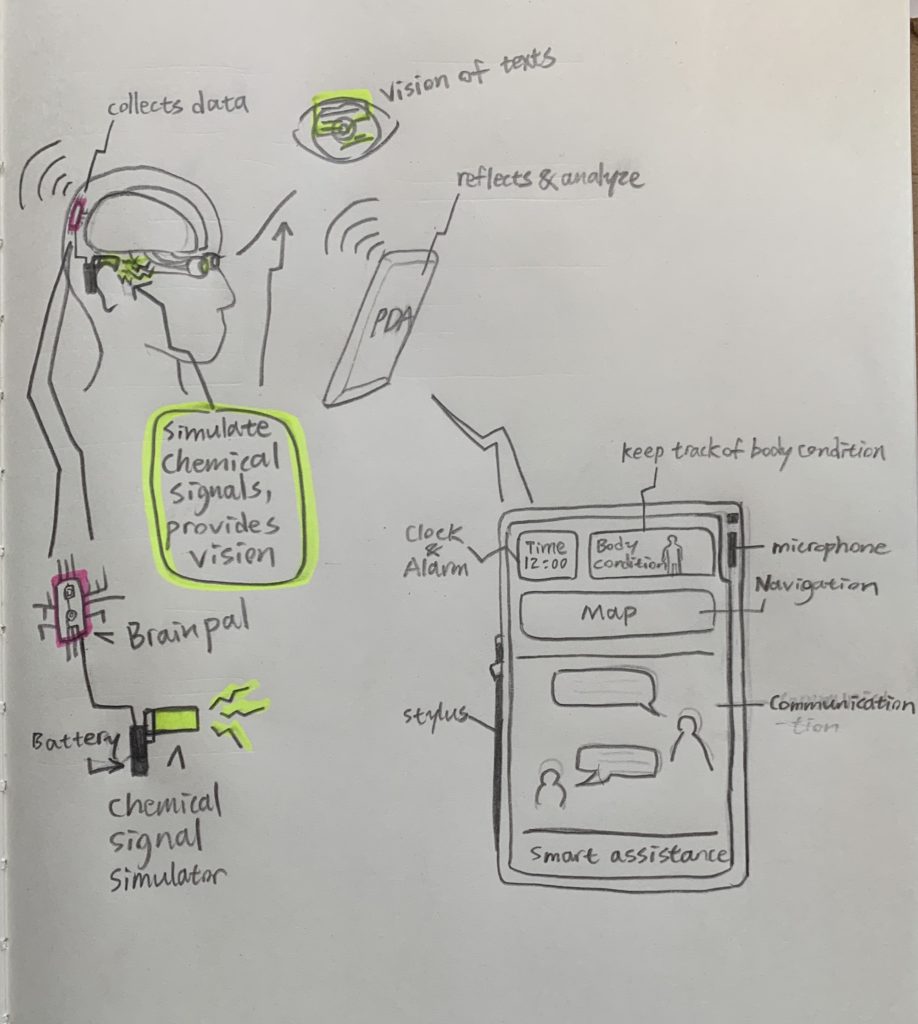 vision of texts
collects data
reflects & analyze
PDA
simulate
chemical
signals,
provides
vision
keep track of body condition
Clock
&
Alarm
Time
12:00
Body
condition
microphone
Navigation
Map
Brainpal
stylus
Communication
Battery
chemical
signal
simulator
smart assistance